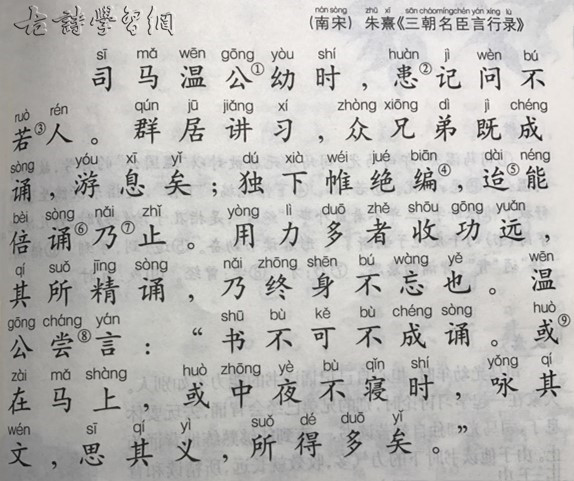 古詩學習網
nán sòng zhū xī sān cháo míng chén yán xíng lù
(南宋) 朱熹《三朝名臣言行录》
sī mǎ wēn gōng yòu shí huàn jì wèn bú
司马温公①幼时,患②记问不
ruò rén qún jū jiǎng xí zhòng xiōng dì jì chéng
若③人。群居讲习,众兄弟既成
sòng yóu xī yǐ dú xià wéi jué biān dài néng
诵,游息矣;独下帷绝编④,迨⑤能
bèi sòng nǎi zhǐ yòng lì duō zhě shōu gōng yuǎn
倍诵⑥乃⑦止。用力多者收功远,
qí suǒ jīng sòng nǎi zhōng shēn bú wàng yě wēn
其所精诵,乃终身不忘也。温
gōng cháng yán shū bù kě bù chéng sòng huò
公尝⑧言:“书不可不成诵。或⑨
zài mǎ shàng huò zhōng yè bù qǐn shí yǒng qí
在马上,或中夜不寝时,咏其
wén sī qí yì suǒ dé duō yǐ
文,思其义,所得多矣。”